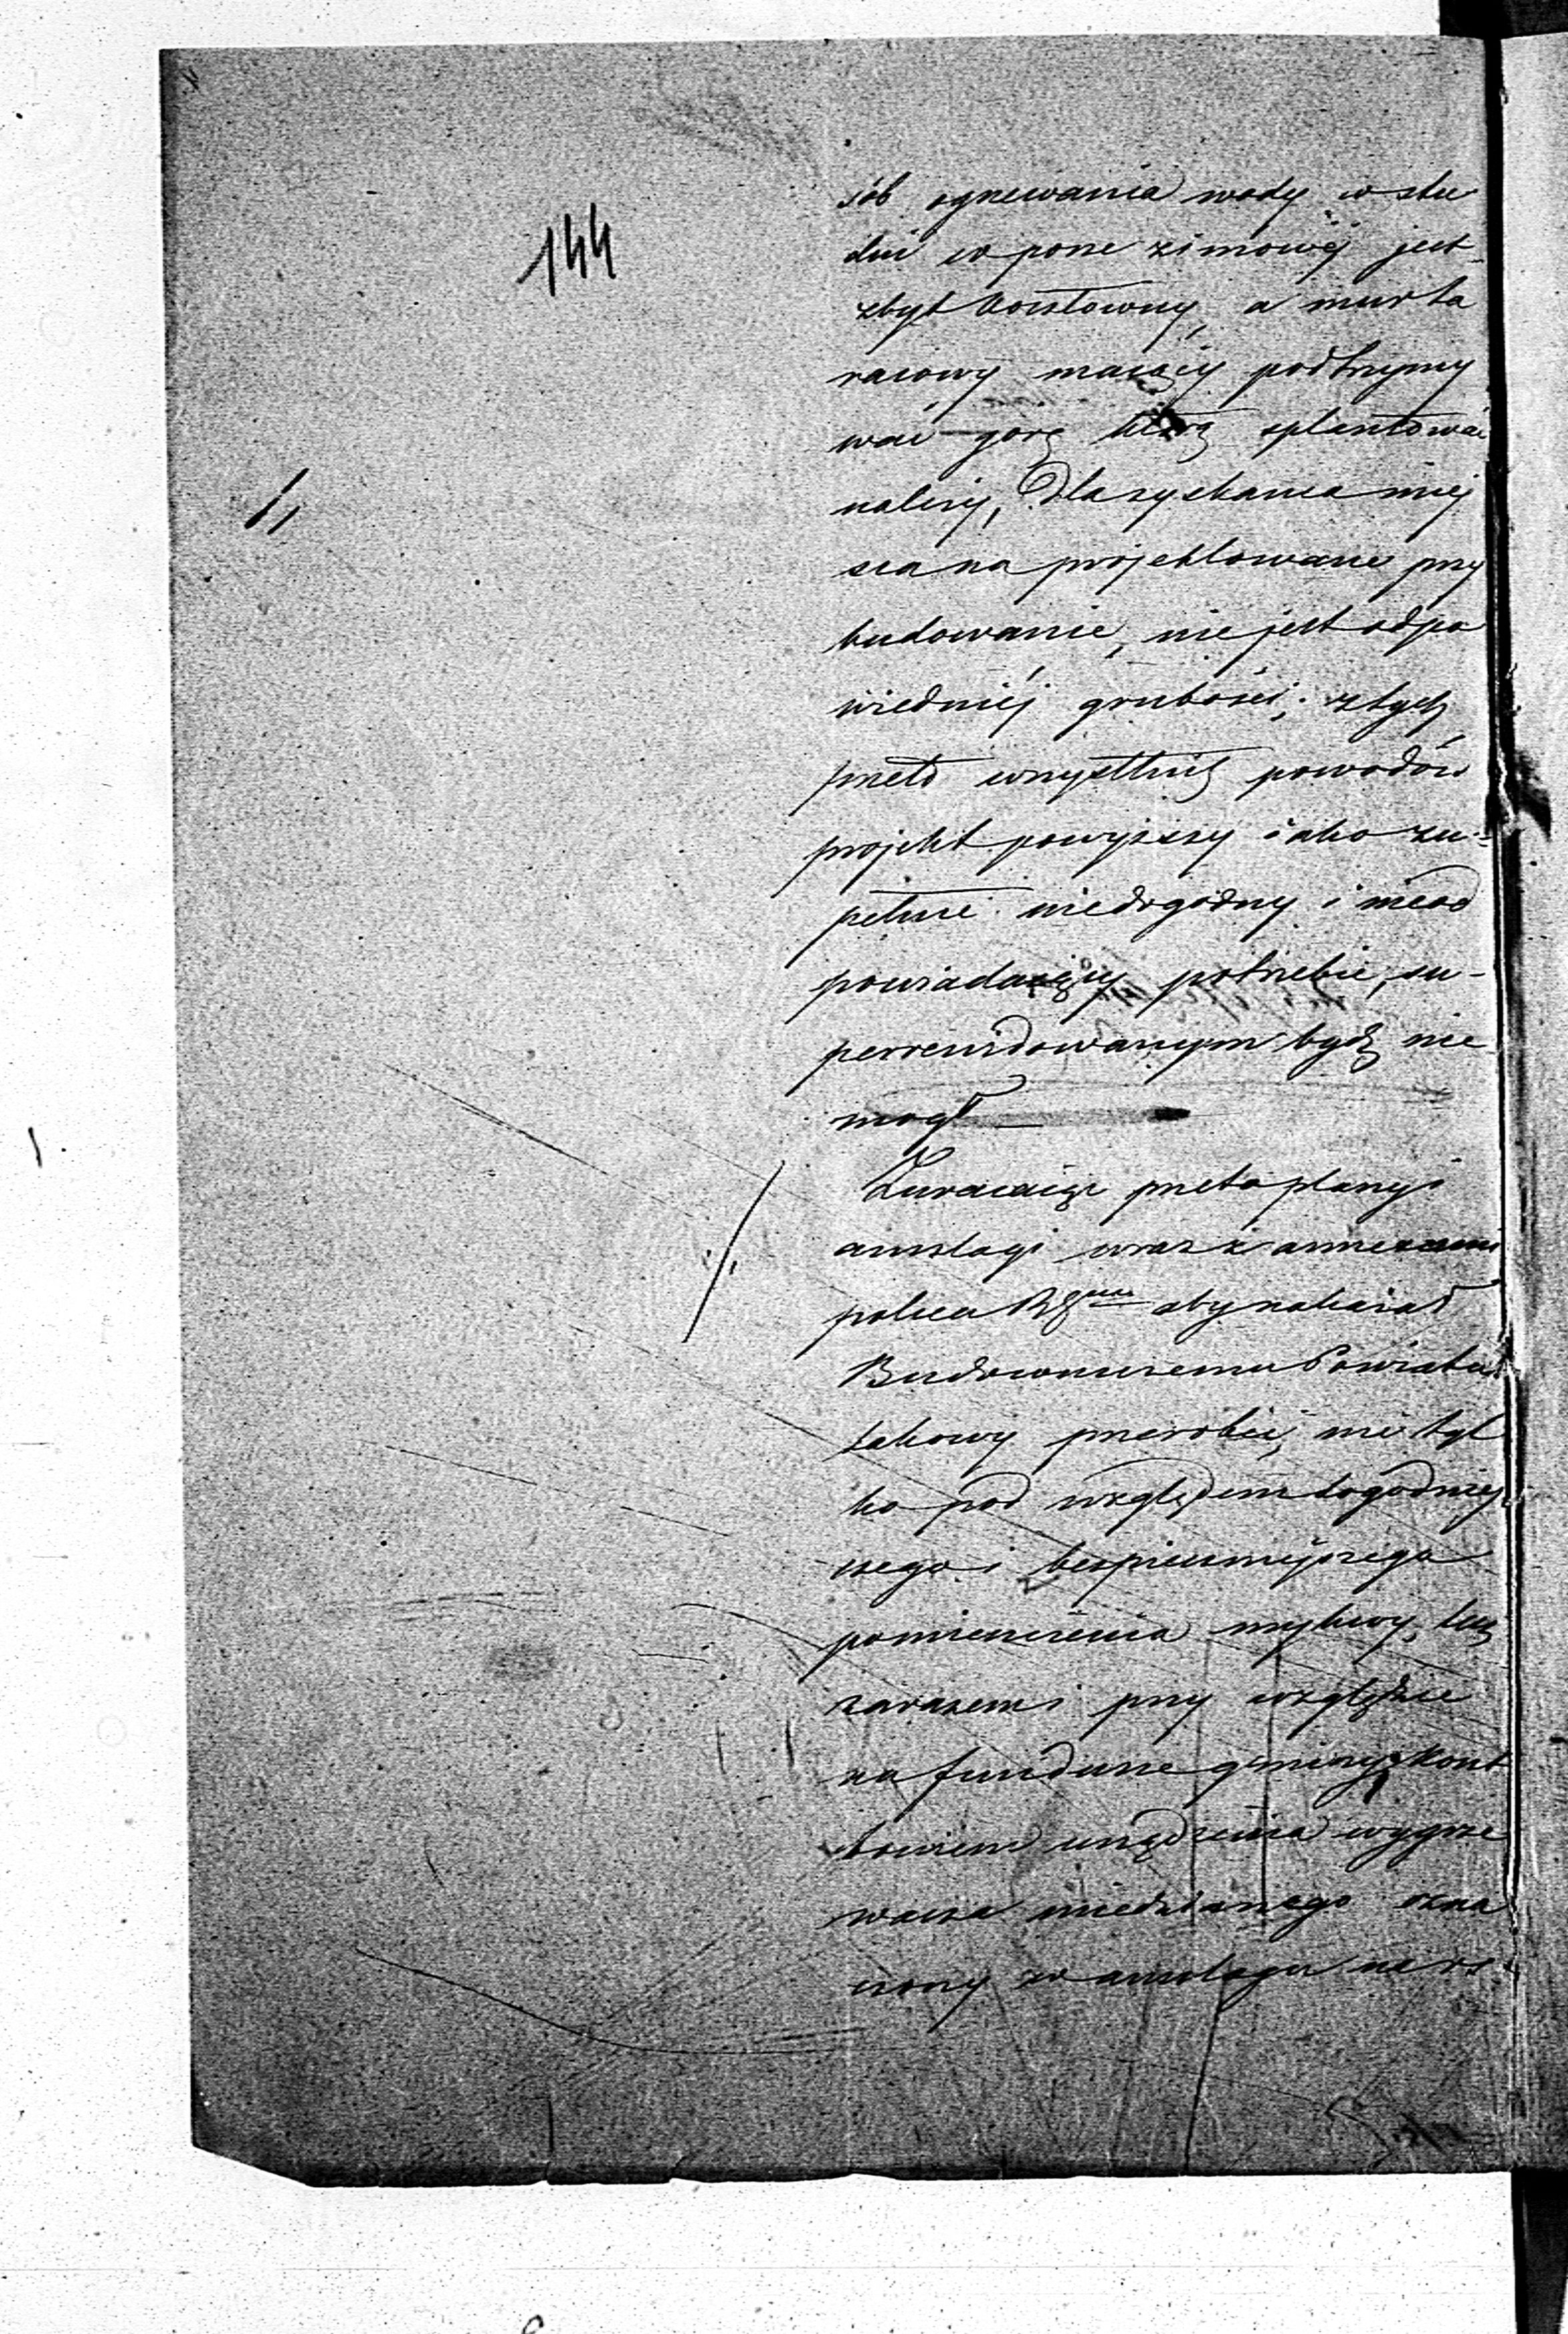 144
sób ogrzewania wody w stu
dni w porze zimowéj jest
zbyt kosztowny, a mur ta
rasowy maiący podtrzymy
wać górę którą splantować
należy, dla zyskania miej
sca na projektowane przy
budowanie, nie jest odpo
wiedniéj grubości; z tych
przeto wszystkich powodów
projekt powyższy iako zu-
pełnie niedogodny i nieod
powiadaiący potrzebie, su-
perrewidowanym bydź nie
mógł —
Zwracaiąc przeto plany i
anszlagi wraz z annexami
poleca aby nakazał
Budowniczemu Powiatu
takowy przerobić, nie tyl
ko pod względem dogodniej
szego i bezpieczniejszego
pomieszczenia mykwy, lecz
zarazem i przy względzie
na fundusze gminy, koszt
bowiem urządzenia wygrze
wacza miedzianego ozna
czony w anszlagu na rs.